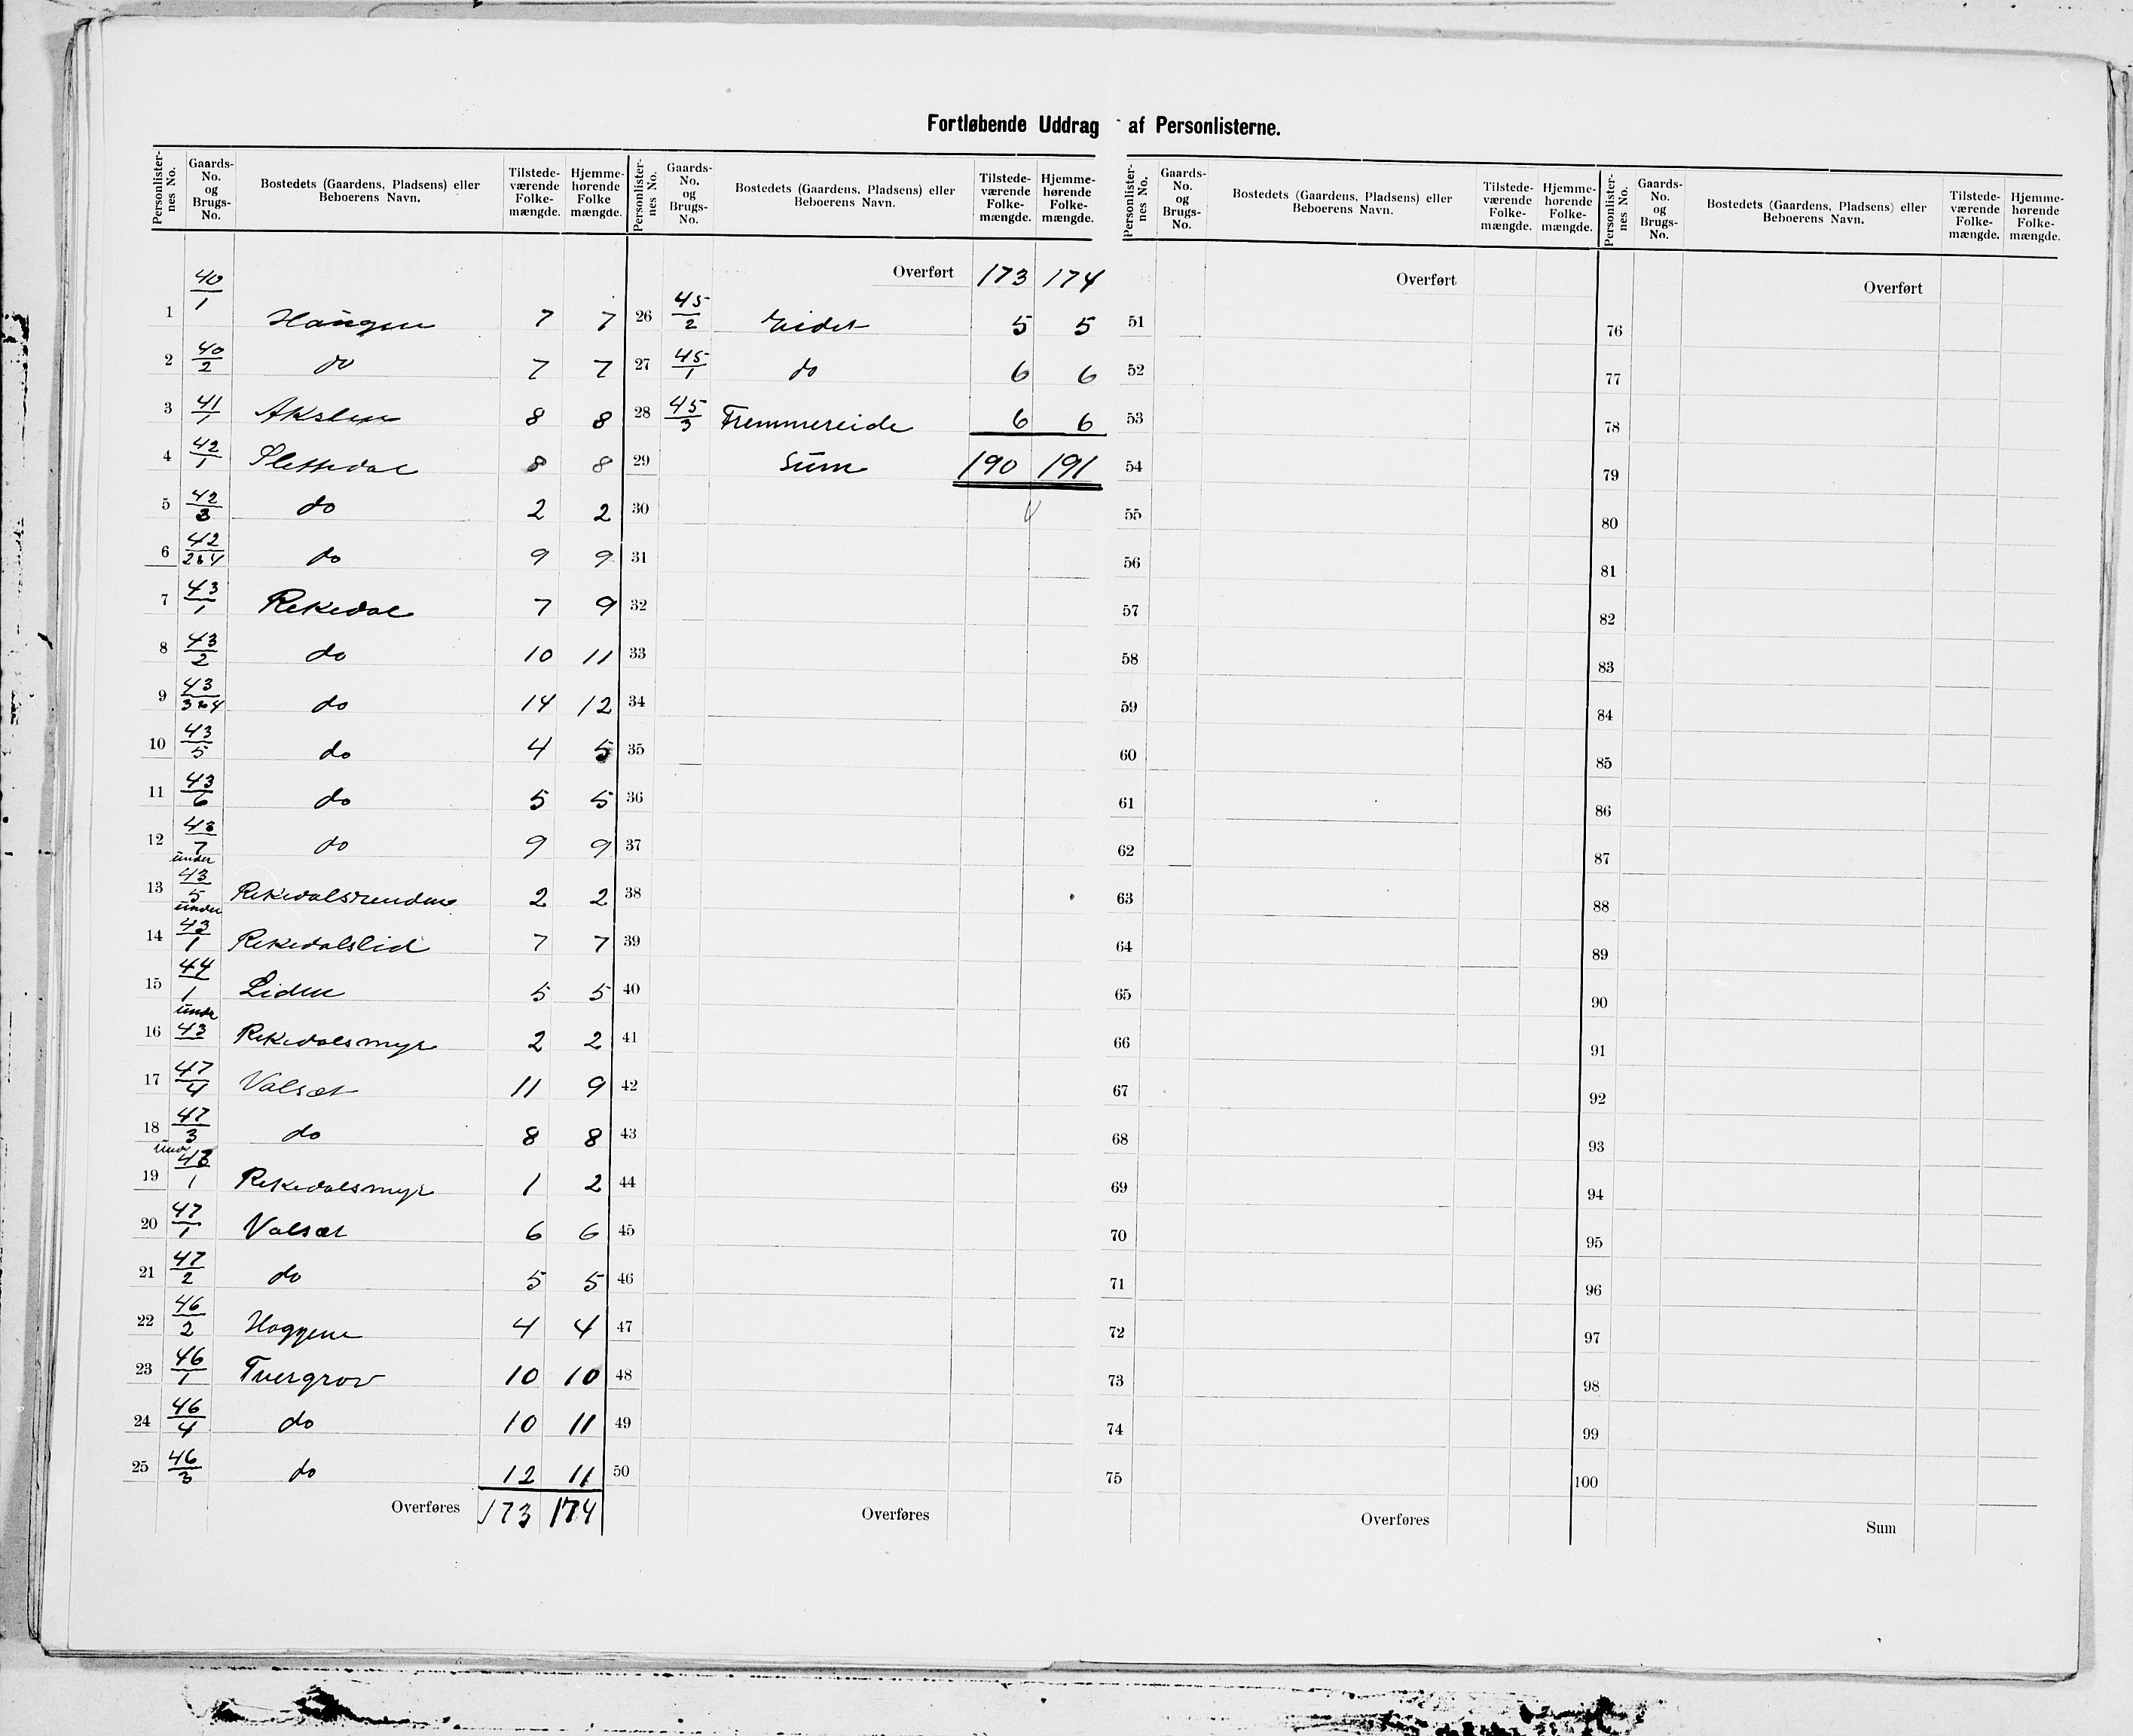 Fortløbende Uddrag af Personlisterne.
Personlisternes No. Gaards-No. og Brugs-No. Bostedets (Gaardens, Pladsens) eller Beboerens Navn. Tilstedeværende Folkemængde. Hjemmehørende Folke mængde.
1 40/1 Haugen 7 7
2 40/2 do 7 7
3 41/1 Akslen 8 8
4 42/1 Slettedal 8 8
5 42/3 do 2 2
6 42/2&4 do 9 9
7 43/1 Rekedal 7 9
8 43/2 do 10 11
9 43/3&4 do 14 12
10 43/5 do 4 5
11 43/6 do 5 5
12 43/7 do 9 9
13 under 43/5 Rekedalsrenden 2 2
14 under 43/1 Rekedalslid 7 7
15 44/1 Liden 5 5
16 under 43 Rekedalsmyr 2 2
17 47/4 Valsæt 11 9
18 47/3 do 8 8
19 under 43/1 Rekedalsmyr 1 2
20 47/1 Valsæt 6 6
21 47/2 do 5 5
22 46/2 Haggene 4 4
23 46/1 Tuergrov 10 10
24 46/4 do 10 11
25 46/3 do 12 11
Overføres 173 174
Personlisternes No. Gaards-No. og Brugs-No. Bostedets (Gaardens, Pladsens) eller Beboerens Navn. Tilstedeværende Folkemængde. Hjemmehørende Folkemængde.
Overført 173 174
26 45/2 Eidet 5 5
27 45/1 do 6 6
28 45/3 Fremmereide 6 6
29 Sum 190 191
30
31
32
33
34
35
36
37
38
39
40
41
42
43
44
45
46
47
48
49
50
Overføres
Personlisternes No. Gaards-No. og Brugs-No. Bostedets (Gaardens, Pladsens) eller Beboerens Navn. Tilstedeværende Folkemængde. Hjemmehørende Folkemængde.
Overført
51
52
53
54
55
56
57
58
59
60
61
62
63
64
65
66
67
68
69
70
71
72
73
74
75
Overføres
Personlisternes No. Gaards-No. og Brugs-No. Bostedets (Gaardens, Pladsens) eller Beboerens Navn. Tilstedeværende Folkemængde. Hjemmehørende Folkemængde.
Overført
76
77
78
79
80
81
82
83
84
85
86
87
88
89
90
91
92
93
94
95
96
97
98
99
100
Sum